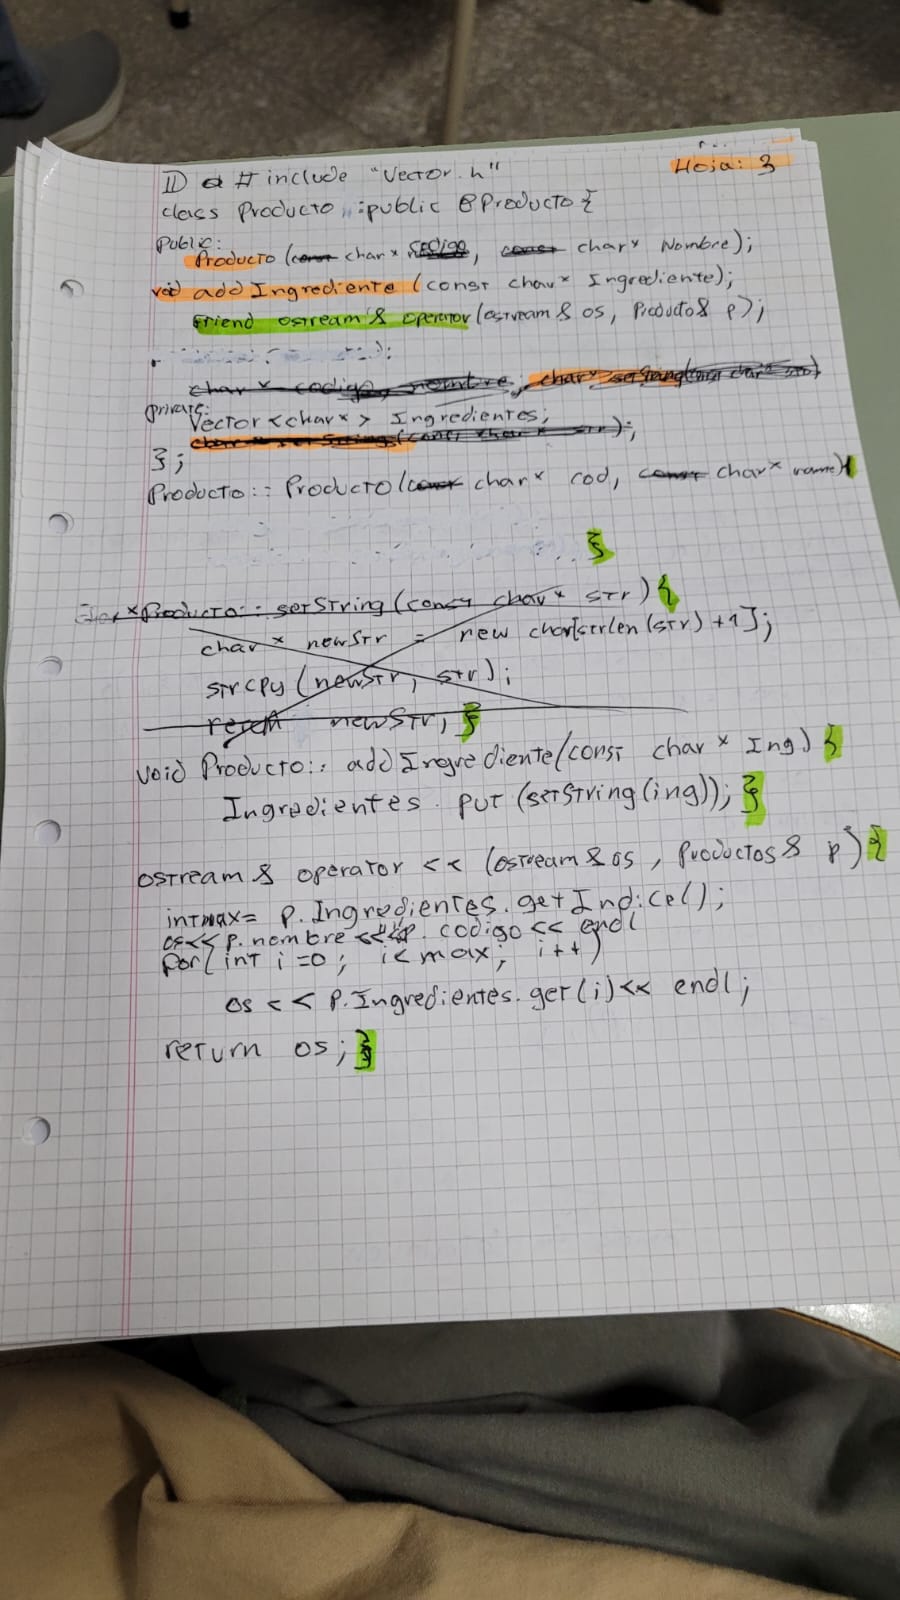 Hoja: 3
#include "Vector.h"
class Producto :public @Producto{
public:
Producto (const char* Codigo, const char* Nombre);
void addIngrediente (const char* Ingrediente);
Friend ostream & operator (ostream & os, Producto& p);
char* codigo, nombre, char* setString(const char* str)
private:
Vector<char*> Ingredientes;
char* set String(const char* str);
};
Producto:: Producto(const char* cod, const char* name){
}
char*Producto:: setString (const char* str){
char* newStr = new char[strlen(str)+1];
strcpy (newStr, str);
return newStr; }
void Producto:: addIngrediente(const char* Ing){
Ingredientes.put(setString(ing));}
ostream & operator << (ostream & os, Productos & p){
int max= p.Ingredientes.getIndice();
os<< p.nombre << p.codigo << endl
for(int i=0; i<max; i++)
os << p.Ingredientes.get(i)<< endl;
return os;}